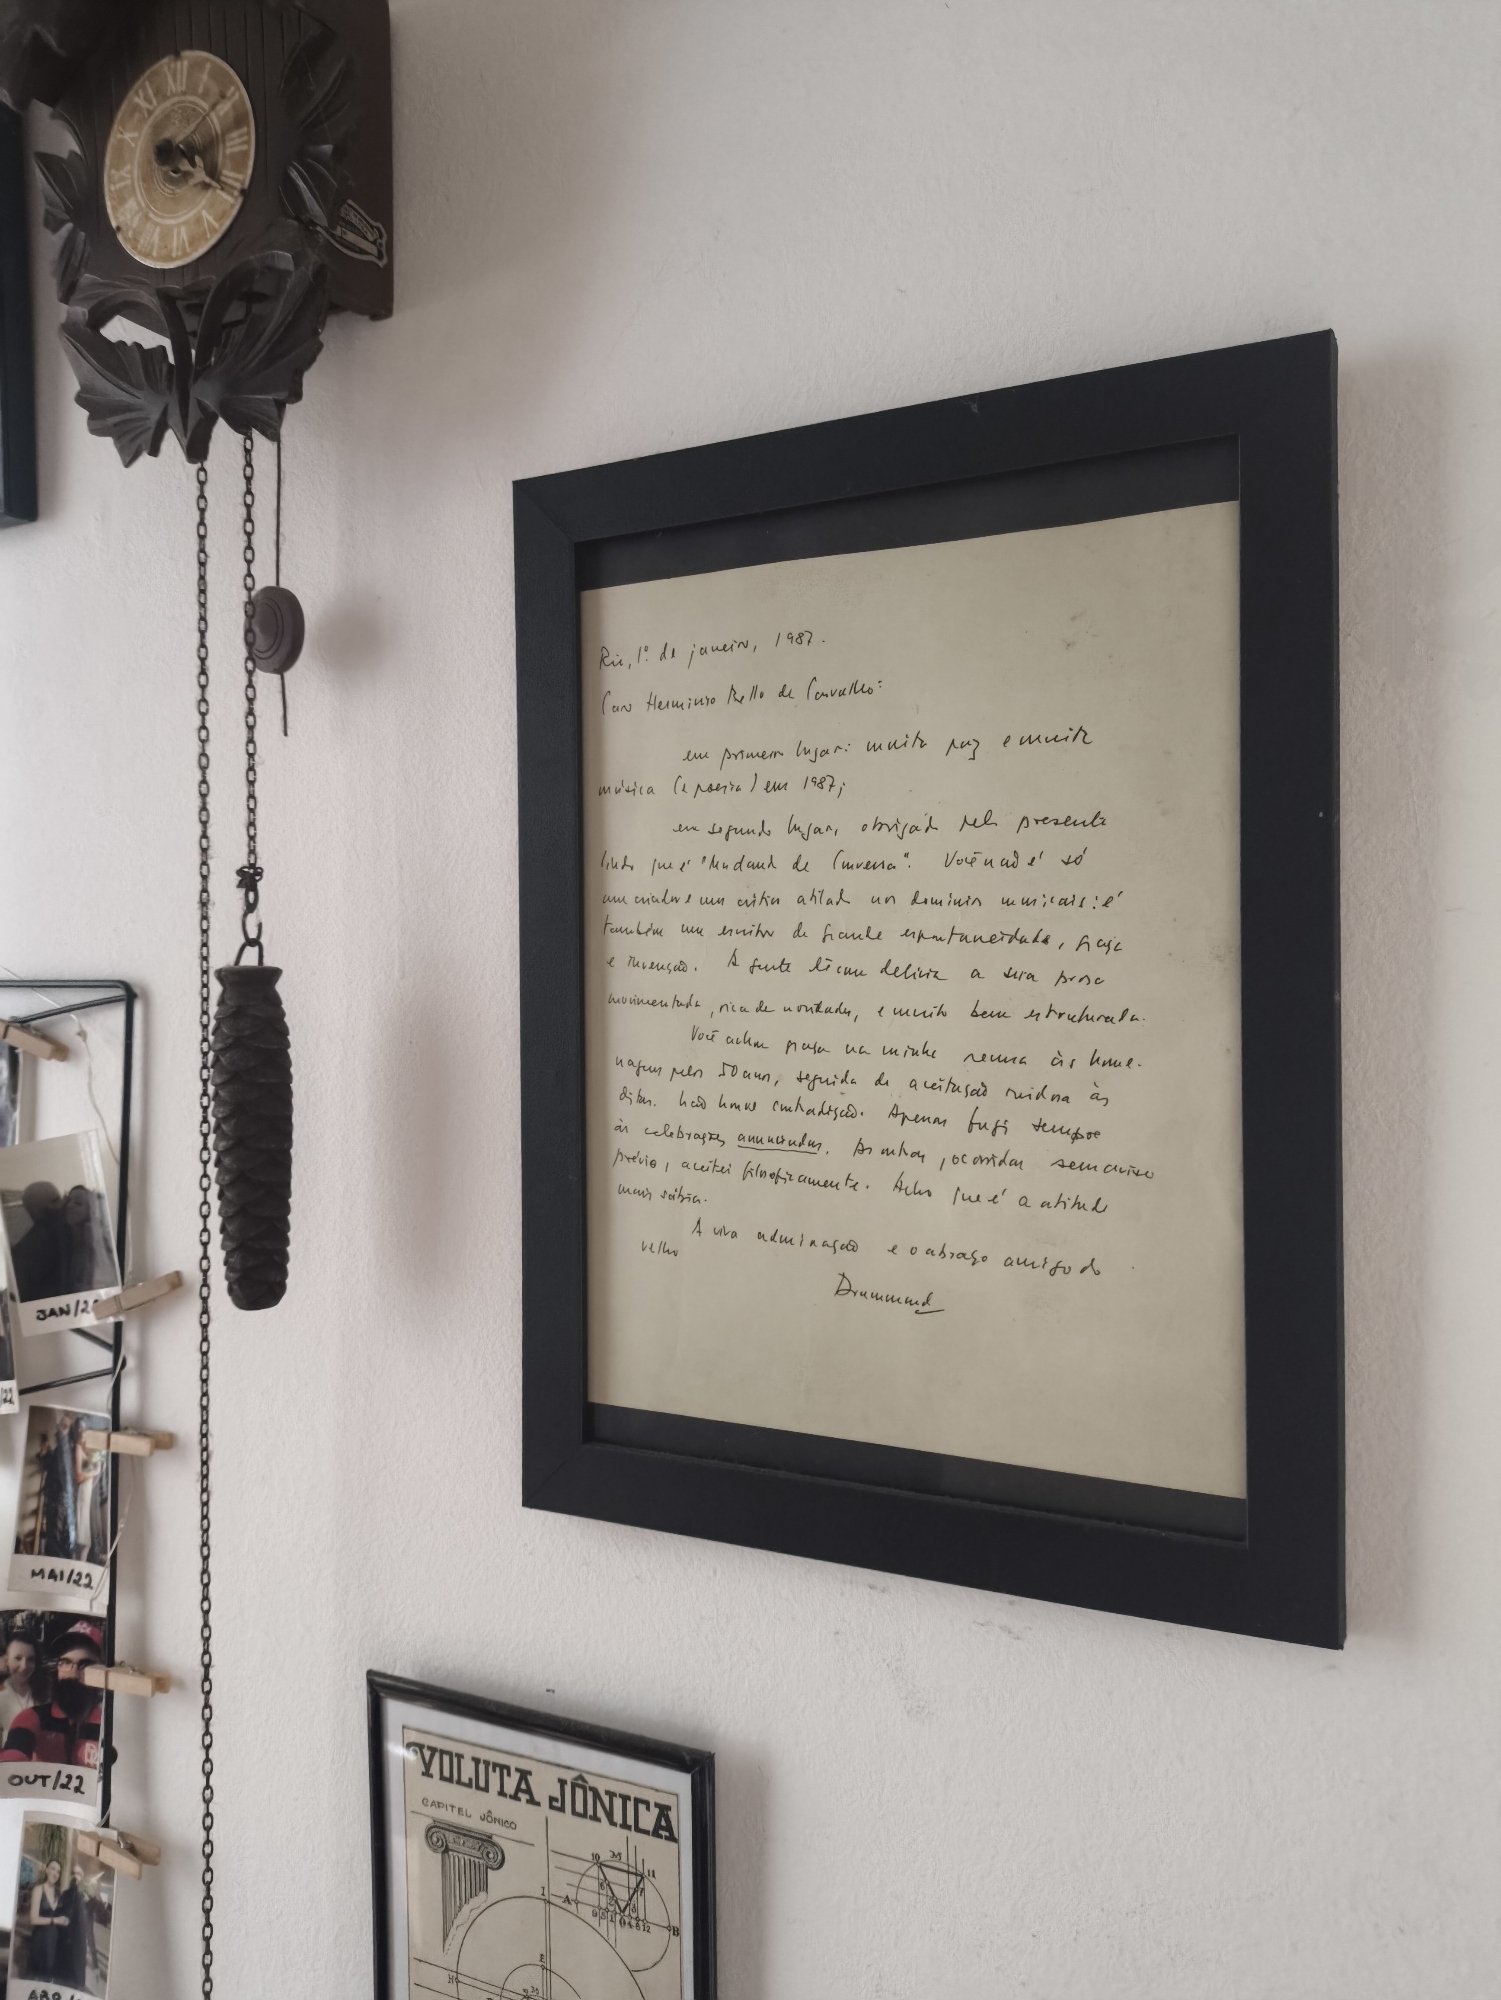 Rio, 1º de janeiro, 1987.
Caro Herminio Bello de Carvalho:
em primeiro lugar: muita paz e muita
música (e poesia) em 1987;
em segundo lugar, obrigado pelo presente
lindo que é "Mudando de Conversa". Você não é só
um criador e um crítico atilado nos domínios musicais: é
também um escritor de grande espontaneidade, graça
e invenção. A gente lê com delícia a sua prosa
movimentada, rica de novidades, e muito bem estruturada.
Você achou graça na minha recusa às home-
nagens pelos 50 anos, seguida de aceitação ruidosa às
ditas. Não houve contradição. Apenas fugi sempre
às celebrações anunciadas. As outras, ocorridas sem aviso
prévio, aceitei filosoficamente. Acho que é a atitude
mais sábia.
A viva admiração e o abraço amigo do
velho
Drummond
XII I II III IIII V VI VII VIII IX X XI
JAN/2
/22
MAI/22
OUT/22
VOLUTA JÔNICA
CAPITEL JÔNICO
10 25 11
A B
I
E
H